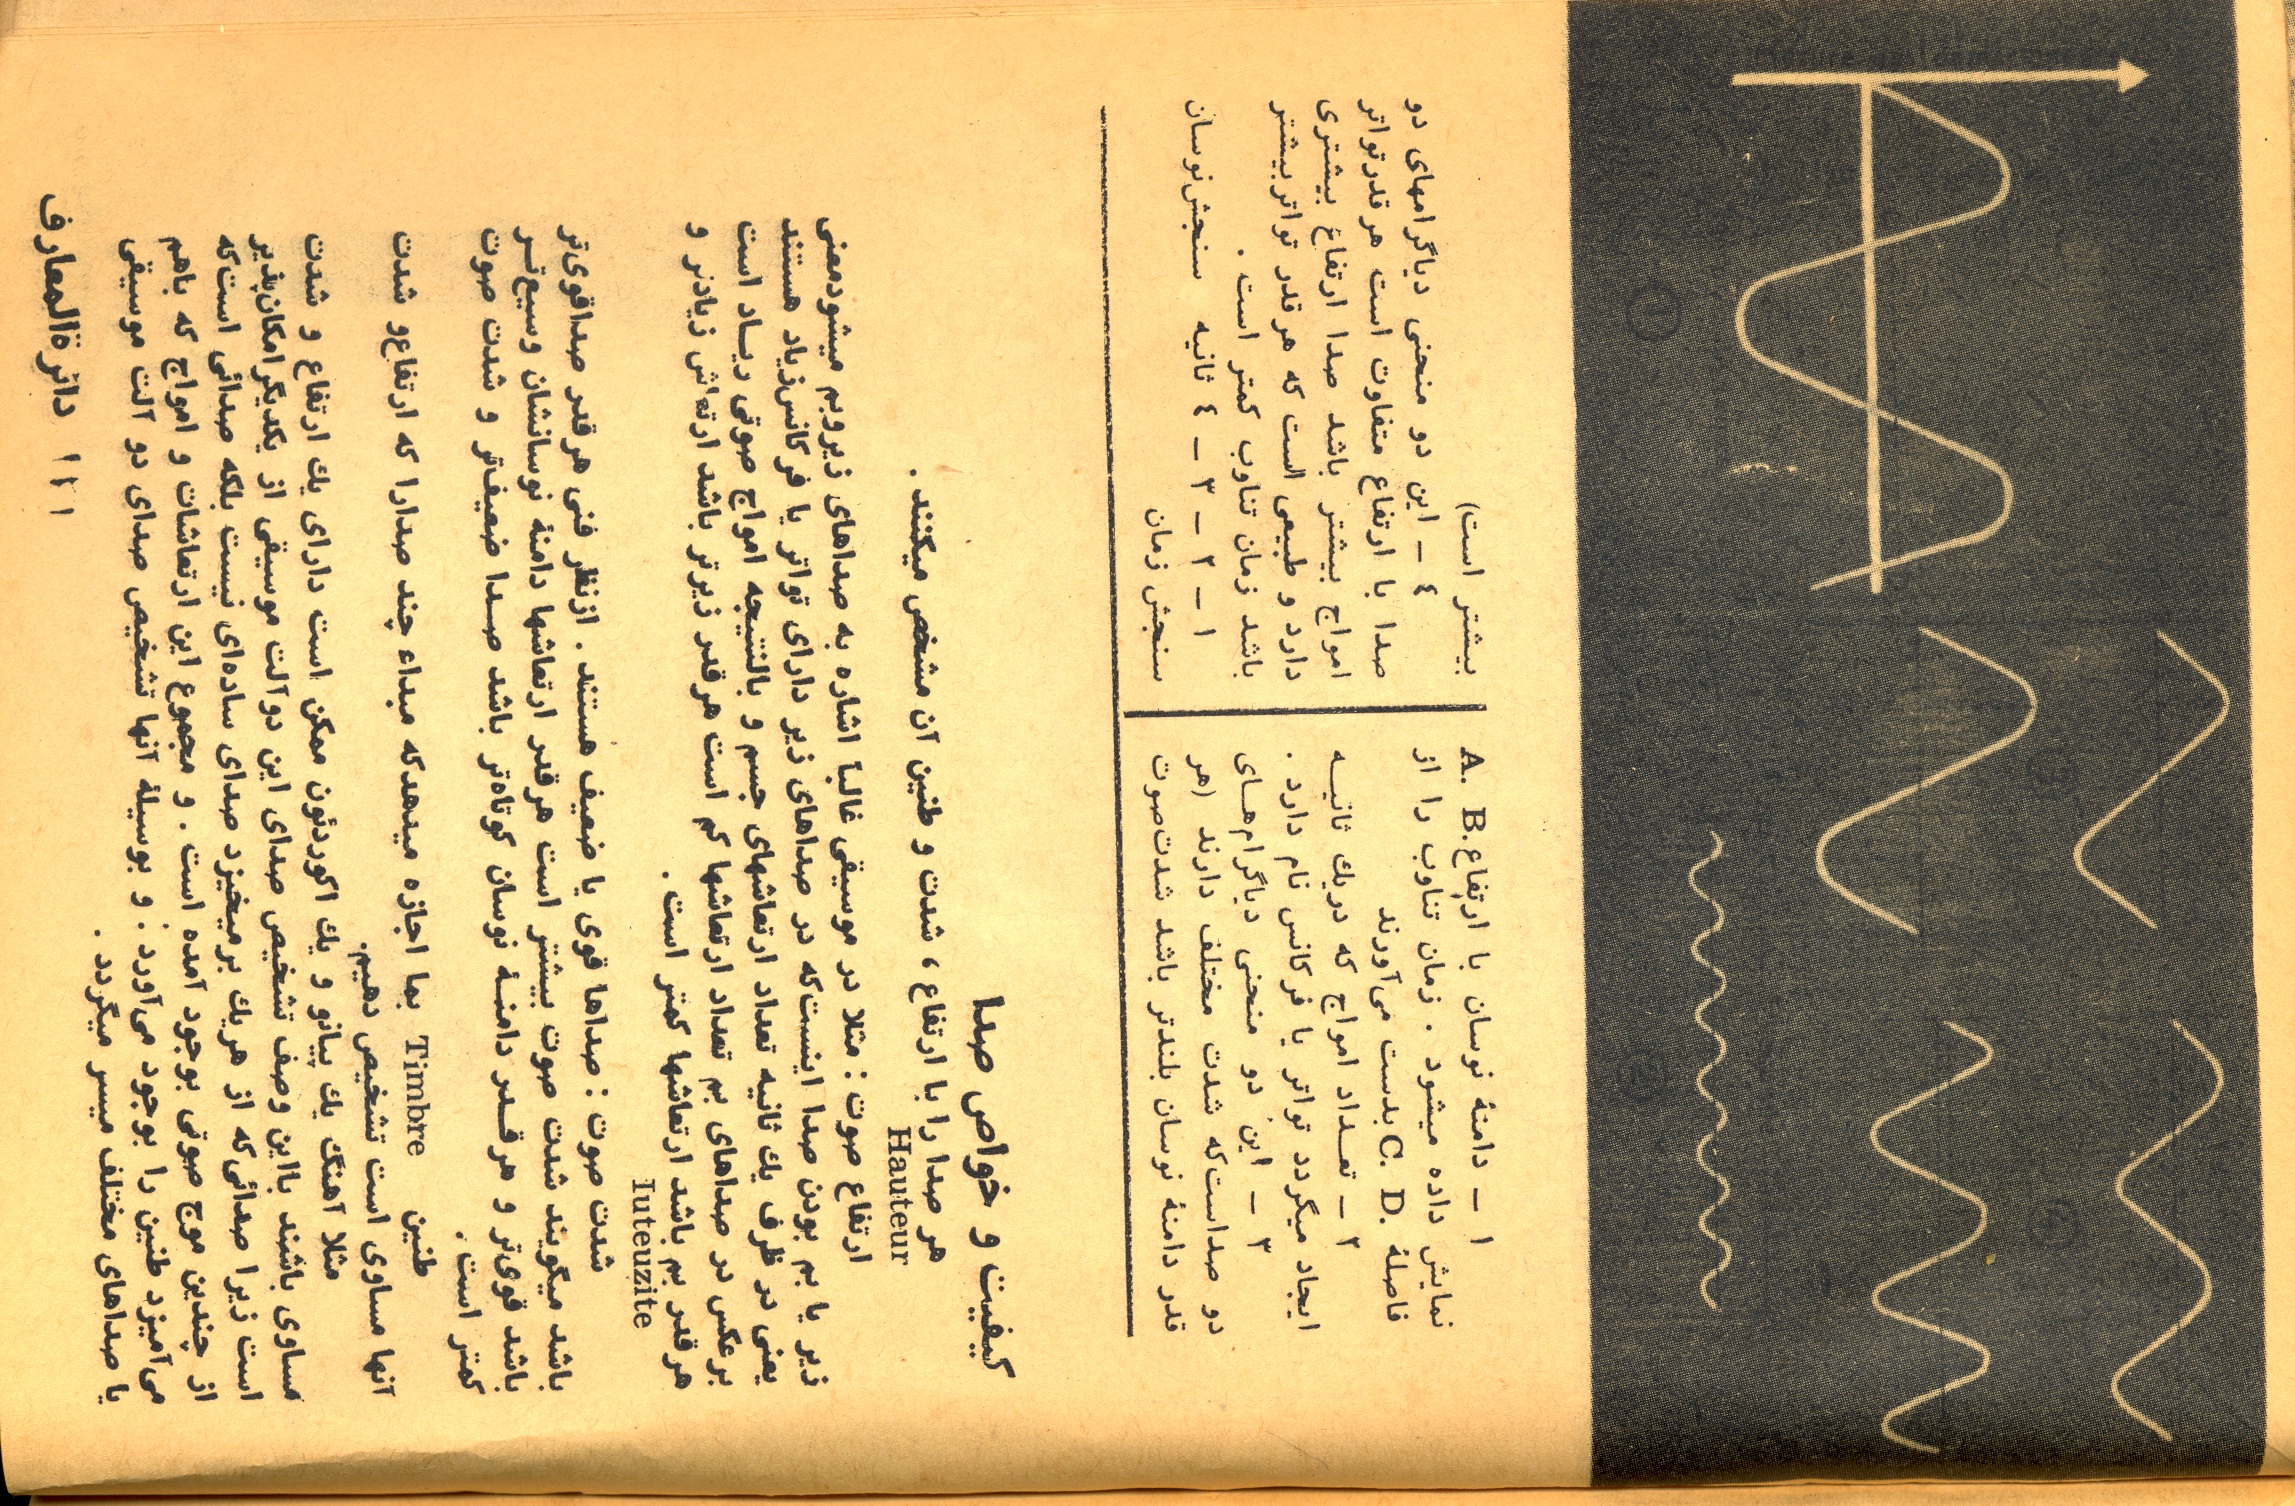 ۱ – دامنهٔ نوسان با ارتفاع A. B.
نمایش داده میشود . زمان تناوب را از
فاصلهٔ C. D. بدست می‌آورند
۲ – تعـداد امواج که دریك ثانیـه
ایجاد میگردد تواتر یا فرکانس نام دارد .
۳ – این دو منحنی دیاگرام‌هـای
دو صداست‌که شدت مختلف دارند (هر
قدر دامنهٔ نوسان بلندتر باشد شدت‌صوت
بیشتر است)
٤ – این دو منحنی دیاگرامهای دو
صدا با ارتفاع متفاوت است هرقدرتواتر
امواج بیشتر باشد صدا ارتفاع بیشتری
دارد و طبیعی الست که هرقدر تواتربیشتر
باشد زمان تناوب کمتر است .
۱ – ۲ – ۳ – ٤ ثانیه سنجش‌نوسان
سنجش زمان
کیفیت و خواص صدا
هر صدا را با ارتفاع ، شدت و طنین آن مشخص میکنند .
Hauteur
ارتفاع صوت : مثلا در موسیقی غالباً اشاره به صداهای زیروبم میشودمعنی
زیر یا بم بودن صدا اینست‌که در صداهای زیر دارای تواتر یا فرکانس‌زیاد هستند
یعنی در ظرف یك ثانیه تعداد ارتعاشهای جسم و بالنتیجه امواج صوتی زیـاد است
برعکس در صداهای بم تعداد ارتعاشها کم است هرقدر زیرتر باشد ارتعاش زیادتر و
هرقدر بم باشد ارتعاشها کمتر است .
Iuteuzite
شدت صوت : صداها قوی یا ضعیف هستند . ازنظر فنی هرقدر صداقوی‌تر
باشد میگویند شدت صوت بیشتر است هرقدر ارتعاشها دامنهٔ نوسانشان وسیع‌تـر
باشد قوی‌تر و هرقـدر دامنـهٔ نوسان کوتاه‌تر باشد صـدا ضعیفتر و شدت صوت
کمتر است .
طنین Timbre بما اجازه میدهدکه مبداء چند صدارا که ارتفاع‌و شدت
آنها مساوی است تشخیص دهیم.
مثلا آهنگ یك پیانو و یك اکوردئون ممکن است دارای یك ارتفاع و شدت
مساوی باشند بااین وصف تشخیص صدای این دوآلت موسیقی از یکدیگرامکان‌پذیر
است زیرا صدائی‌که از هریك برمیخیزد صدای ساده‌ای نیست بلکه صدائی است‌که
از چندین موج صوتی بوجود آمده است . و مجموع این ارتعاشات و امواج که باهم
می‌آمیزد طنین را بوجود می‌آورد . و بوسیلهٔ آنها تشخیص صدای دو آلت موسیقی
یا صداهای مختلف میسر میگردد .
دائرةالمعارف